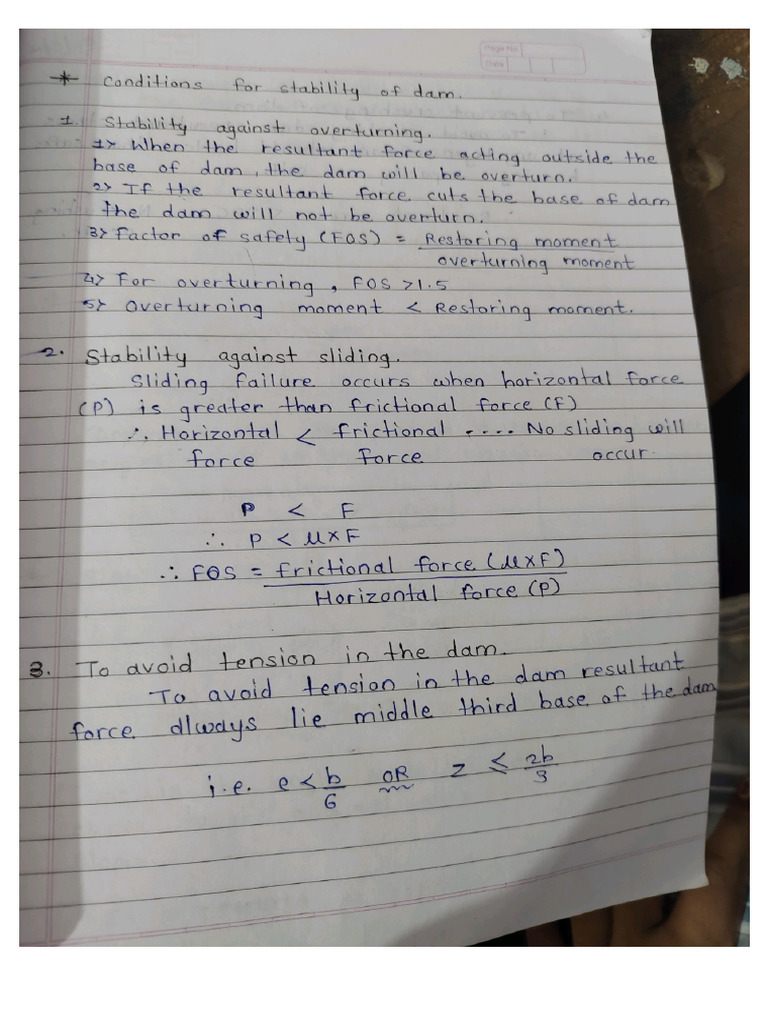 Page No
Date
* Conditions for stability of dam.
1. Stability against overturning.
1> When the resultant force acting outside the
base of dam, the dam will be overturn.
2> If the resultant force cuts the base of dam
the dam will not be overturn.
3> Factor of safety (FOS) = Restoring moment
overturning moment
4> For overturning, FOS >1.5
5> Overturning moment < Restoring moment.
2. Stability against sliding.
Sliding failure occurs when horizontal force
(P) is greater than frictional force (F)
∴ Horizontal < frictional .... No sliding will
force force occur.
P < F
∴ P < μ×F
∴ FOS = frictional force (μ×F)
Horizontal force (P)
3. To avoid tension in the dam.
To avoid tension in the dam resultant
force always lie middle third base of the dam
i.e. e < b/6 OR z ≤ 2b/3